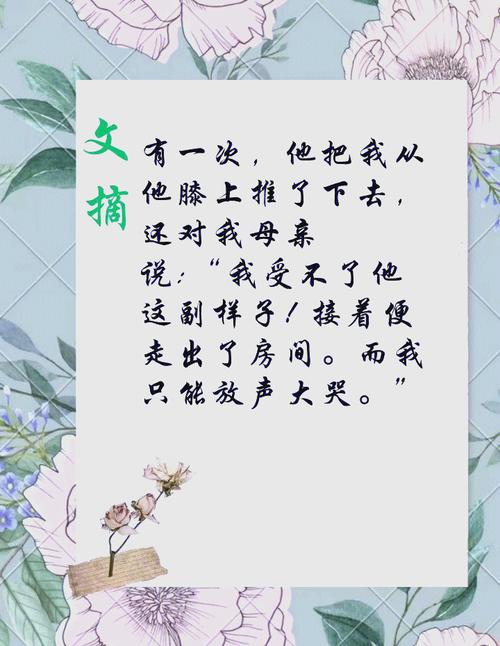 文摘
有一次，他把我从
他膝上推了下去，
还对我母亲
说：“我受不了他
这副样子！接着便
走出了房间。而我
只能放声大哭。”